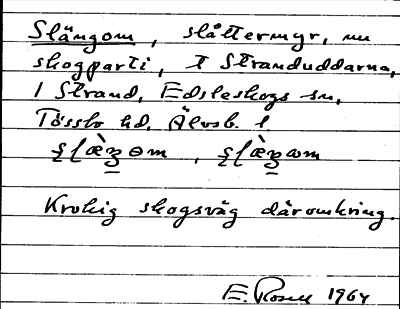 Slängom, slåttermyr, nu
skogparti, t Stranduddarna,
1 Strand, Edsleskogs sn,
Tössbo hd. Älvsb. l.
Krokig skogsväg däromkring.
E. Rosell 1964